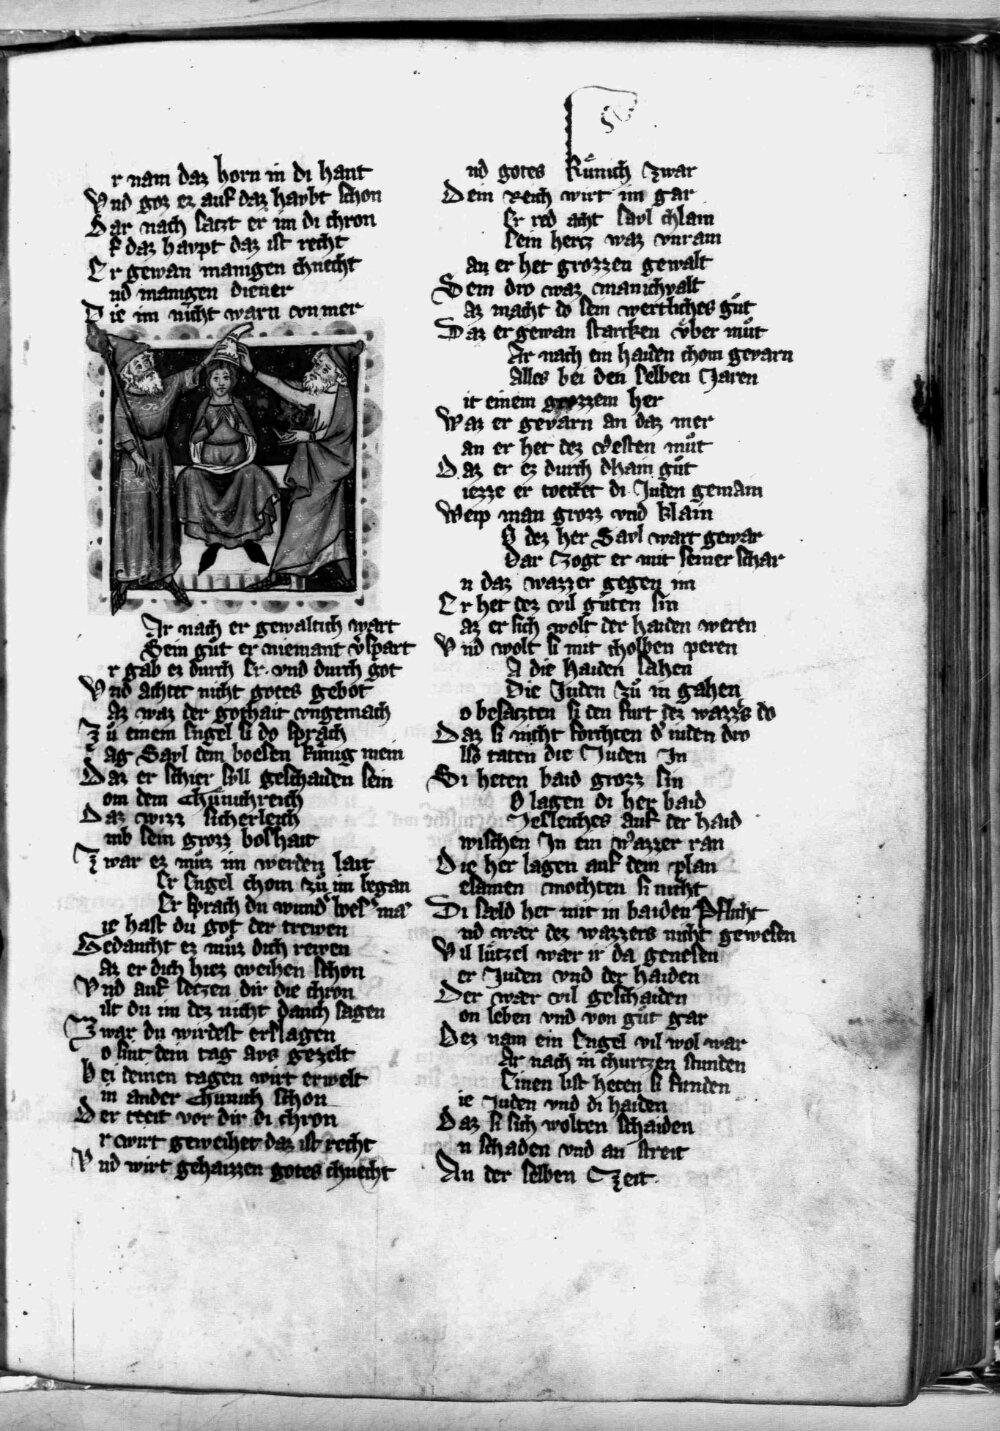 r nam daz horn in di hant
Vnd goz ez auf daz havbt schon
Dar nach satzt er im di chron
f daz havpt daz ist recht
Er gewan manigen chnecht
nd manigen diener
Die im nicht warn vnmer
Ar nach er gewaltich wart
Sein gůt er niemant v̓spart
r gab ez durch Er vnd durch got
Vnd achtet nicht gotes gebot
Az waz der gothait vngemach
Zů einem Engel si do sprach
ag Sayl dem boesen kůnig mein
Daz er schier sůll geschaiden sein
om dem Chůnichreich
Daz wizz sicherleich
mb sein grozz boshait
Zwar ez můz im werden lait
Er Engel chom zů im began
Er sprach du
ie hast du got der trewen
Gedaucht ez můz dich rewen
az er dich hiez weihen schon
Vnd auf setzen dir die chron
ilt du im dez nicht danch sagen
Zwar du wirdest erslagen
o sint dein tag avs gezelt
bei deinen tagen wirt erwelt
in ander Chunich schon
Der treit vor dir di chron
r wirt geweihet daz ist recht
Vnd wirt gehaizzen gotes chnecht
nd gotes Kůnich zwar
Dein Reich wirt im gar
Er red acht Sayl chlain
Sein hertz waz vnrain
an er het grozzen gewalt
Sein dro waz manichvalt
az macht do sein wertliches gůt
Daz er gewan starcken v̓ber můt
Ar nach ein haiden chom gevarn
Alles bei den selben Jaren
it einem grozzem her
Waz er gevarn an daz mer
an er het dez vesten můt
Daz er ez durch dhain gůt
iezze er toettet di Juden gemain
Weip man grozz vnd klain
O dez her Sayl wart gewar
Dar Zogt er mit seiner schar
n daz wazzer gegen im
Er het dez vil gůten sin
az er sich wolt der haiden weren
Vnd wolt si mit cholben peren
A die haiden sahen
Die Juden zů in gahen
o besatzten si den furt dez wazz̓s do
Daz si nicht forchten d̓ iuden dro
lso taten die Juden In
Si heten baid grozz sin
O lagen di her baid
Jetleiches auf der haid
wischen In ein wazzer ran
Die her lagen auf dem plan
esamen mochten si nicht
Di saeld het mit in baiden Pflicht
nd waer dez wazzers nicht gewesen
Vil lůtzel waer ir da genesen
er Juden vnd der haiden
Der waer vil geschaiden
on leben vnd von gůt gar
Dez nam ein Engel vil wol war
Ar nach in churtzen stunden
Einen list heten si funden
ie Juden vnd di haiden
Daz si sich wolten schaiden
n schaden vnd an streit
An der selben Zeit